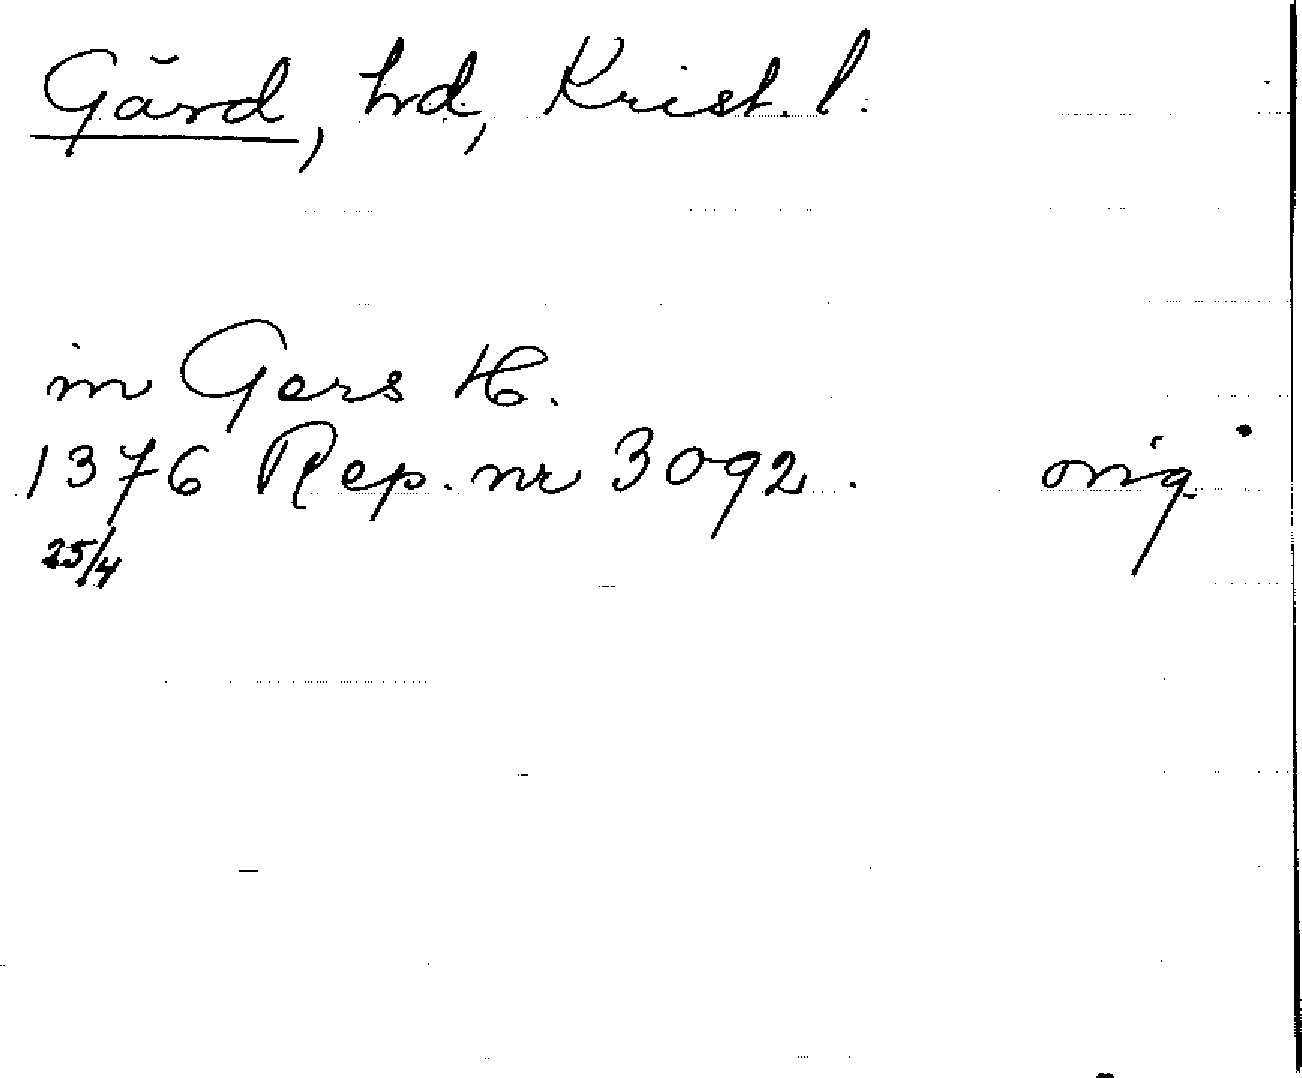 Gärd, hd, Krist. l.
in Gers H.
1376 Rep. nr 3092. orig
25/4